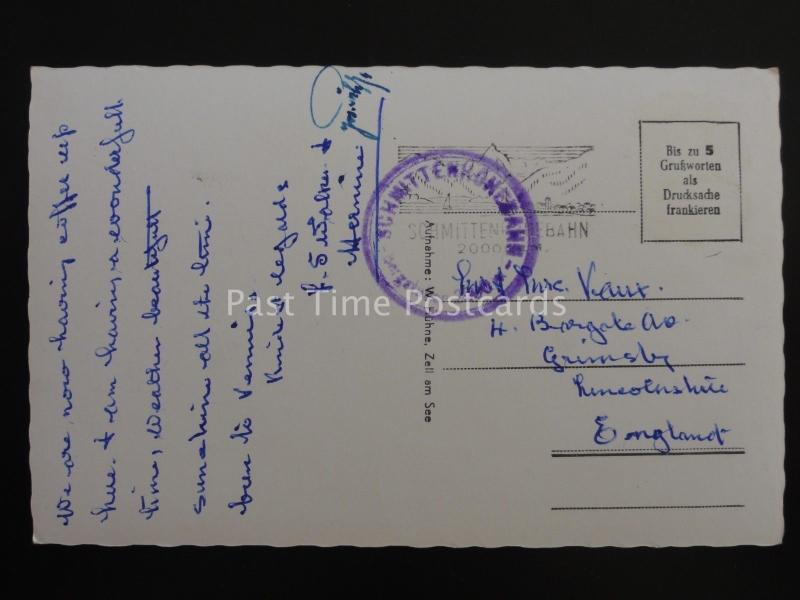 We are now having coffee up
here. I am having a wonderfull
time, weather beautifull
sunshine all the time.
been to Venice.
Kindest regards
F. S Walker &
Hermine
SCHMITTENHÖHEBAHN
SCHMITTENHÖHEBAHN
2000
Bis zu 5
Grußworten
als
Drucksache
frankieren
Aufnahme: W. Bühne, Zell am See
Mr & Mrs. Vaux.
4. Bargate Av.
Grimsby
Lincolnshire
England
Past Time Postcards